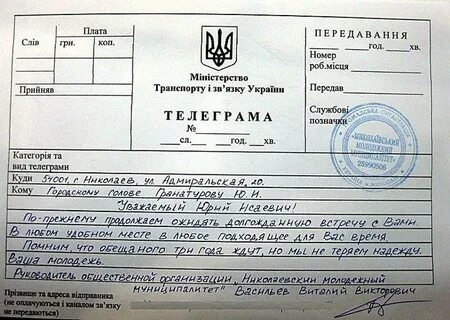 Слів
Плата
грн.
коп.
Прийняв
Міністерство
Транспорту і зв'язку України
ТЕЛЕГРАМА
№
сл.
год.
хв.
ПЕРЕДАВАННЯ
год.
хв.
Номер
роб.місця
Передав
Службові
позначки
ГРОМАДСЬКА ОРГАНІЗАЦІЯ
"МИКОЛАЇВСЬКИЙ
МОЛОДІЖНИЙ
МУНІЦИПАЛІТЕТ"
25990506
Категорія та
вид телеграми
Куди 54001, г. Николаев, ул. Адмиральская, 20.
Кому Городскому голове Гранатурову Ю.И.
Уважаемый Юрий Исаевич!
По-прежнему продолжаем ожидать долгожданную встречу с Вами.
В любом удобном месте в любое подходящее для Вас время.
Помним, что обещаного три года ждут, но мы не теряем надежду.
Ваша молодежь.
Руководитель общественной организации "Николаевский молодежный
муниципалитет" Васильев Виталий Викторович
Прізвище та адреса відправника
(не оплачуються і каналом зв'язку
не передаються)